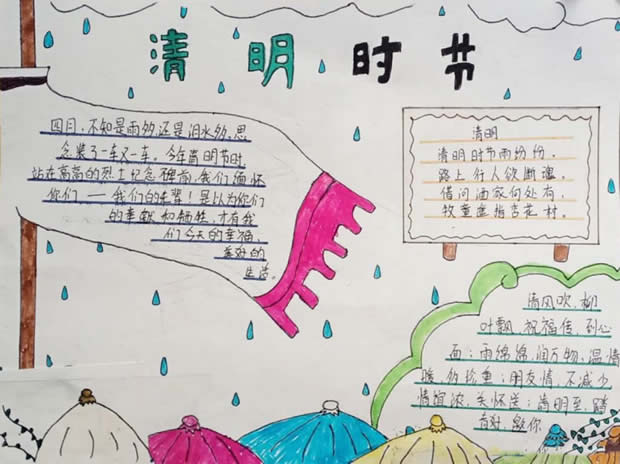 清明时节
四月，不知是雨多，还是泪水多，思
念装了一车又一车。今年清明节时，
站在高高的烈士纪念碑前，我们缅怀
你们——我们的先辈！是以为你们
的奉献和牺牲，才有我
们今天的幸福、
美好的
生活。
清明
清明时节雨纷纷，
路上行人欲断魂。
借问酒家何处有，
牧童遥指杏花村。
清风吹，柳
叶飘，祝福传，到心
面；雨绵绵，润万物，温情
暖，多珍重；朋友情，不减少，
情谊浓，关怀送；清明至，踏
青好，愿你